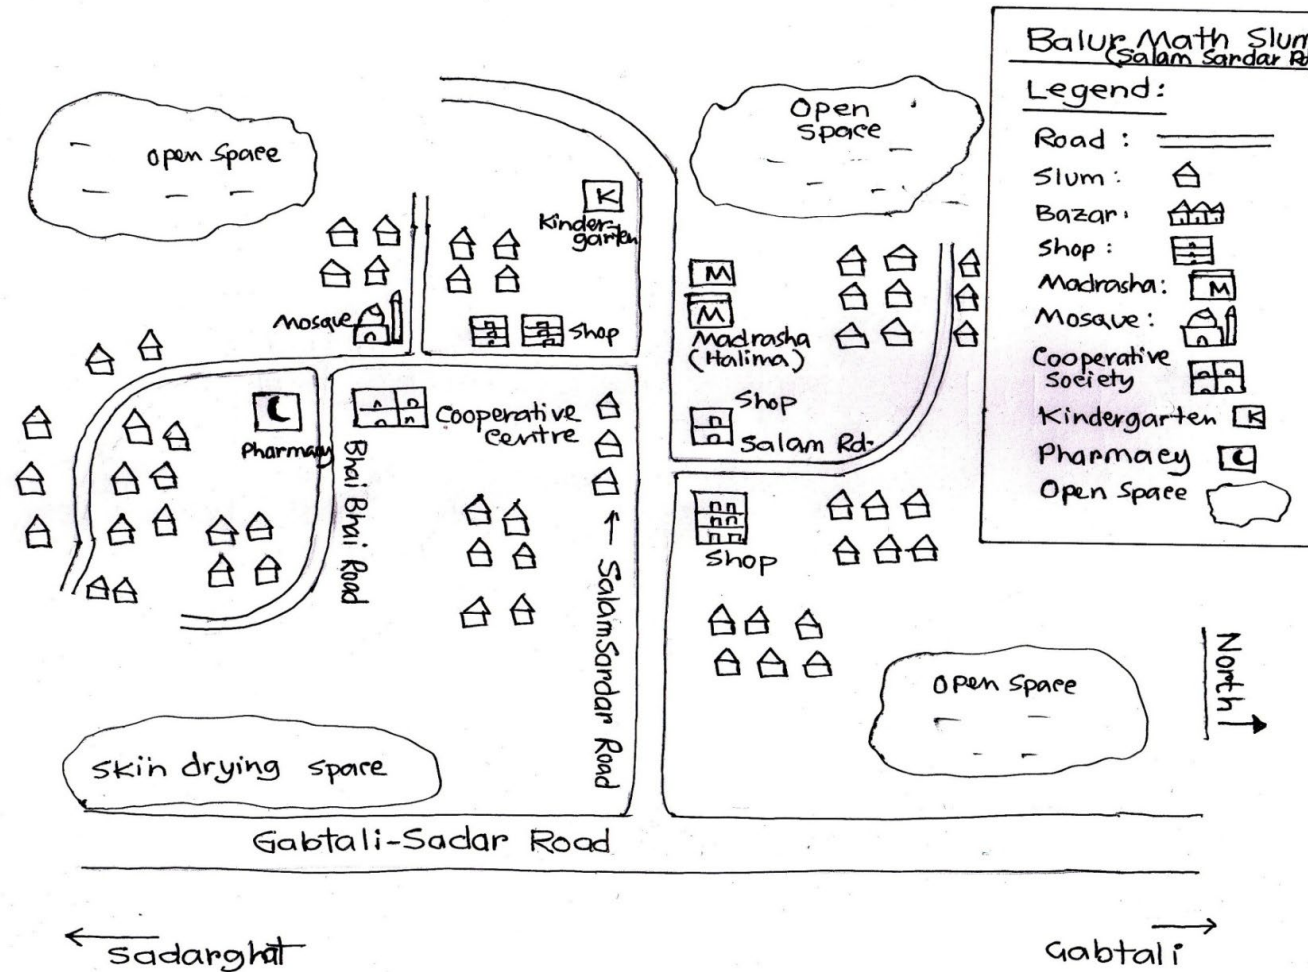 Balur Math Slum
(Salam Sardar Rd
Legend:
Road :
Slum:
Bazar:
Shop :
M
Madrasha:
Mosque :
Cooperative
Society
Kindergarten
K
Pharmacy
Open Space
Open Space
Open
Space
K
Kinder-
garten
Mosque
Shop
M
M
Madrasha
(Halima)
Pharmacy
Cooperative
centre
Shop
Salam Rd.
Bhai Bhai Road
Salam Sardar Road
Shop
North
Open Space
Skin drying space
Gabtali-Sadar Road
Sadarghat
Gabtali